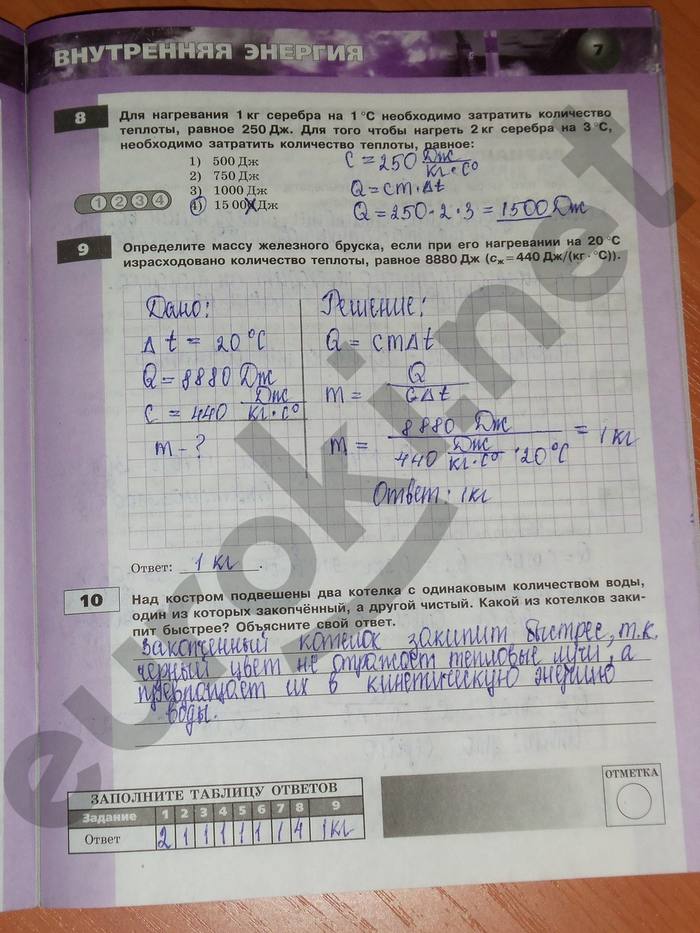 ВНУТРЕННЯЯ ЭНЕРГИЯ
7
8
Для нагревания 1 кг серебра на 1 °С необходимо затратить количество
теплоты, равное 250 Дж. Для того чтобы нагреть 2 кг серебра на 3 °С,
необходимо затратить количество теплоты, равное:
1) 500 Дж
2) 750 Дж
3) 1000 Дж
4) 15 000 Дж
1 2 3 4
C = 250 Дж/кг·C°
Q = cm·Δt
Q = 250·2·3 = 1500 Дж
9
Определите массу железного бруска, если при его нагревании на 20 °С
израсходовано количество теплоты, равное 8880 Дж (сж = 440 Дж/(кг · °С)).
Дано:
Δt = 20°C
Q = 8880 Дж
C = 440 Дж/кг·C°
m - ?
Решение:
Q = cmΔt
m = Q/cΔt
m = 8880 Дж / 440 Дж/кг·C° · 20°C = 1 кг
Ответ: 1кг
Ответ: 1 кг .
10
Над костром подвешены два котелка с одинаковым количеством воды,
один из которых закопчённый, а другой чистый. Какой из котелков заки-
пит быстрее? Объясните свой ответ.
Закопченный котелок закипит быстрее, т.к.
черный цвет не отражает тепловые лучи, а
превращает их в кинетическую энергию
воды.
ЗАПОЛНИТЕ ТАБЛИЦУ ОТВЕТОВ
Задание 1 2 3 4 5 6 7 8 9
Ответ 2 1 1 1 1 1 1 4 1кг
ОТМЕТКА
euroki.net